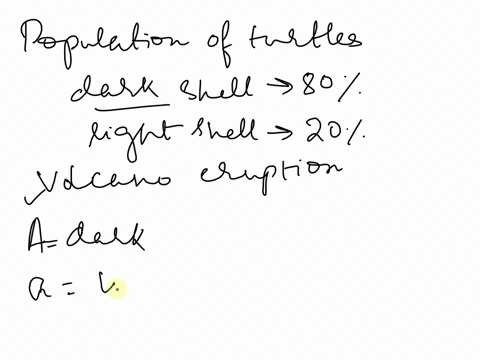 Population of turtles
dark shell → 80%.
light shell → 20%.
Volcano eruption
A = dark
a =